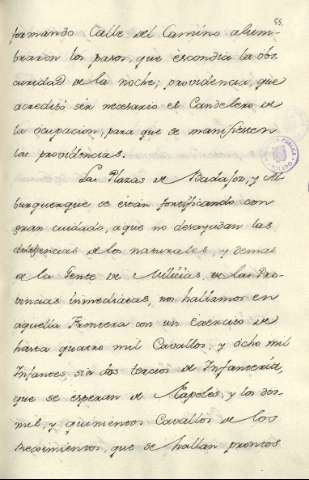 55.
formando Calle del Camino alum-
braron los pasos, que escondia la obs-
curidad de la noche; providencia, que
acreditó ser necesario el Candelero de
la ocupacion, para que se manifiesten
las providencias.
Las Plazas de Badajoz, y Al-
burquerque se están fortificando con
gran cuidado, a que no desayudan las
diligencias de los naturales, y demas
de la Gente de Milicias, de las Pro-
vincias inmediatas, nos hallamos en
aquella Frontera con un Exercito de
hasta quatro mil Cavallos, y ocho mil
Infantes, sin dos tercios de Infantería,
que se esperan de Napoles, y los dos
mil, y quinientos Cavallos de los
Regimientos, que se hallan prontos